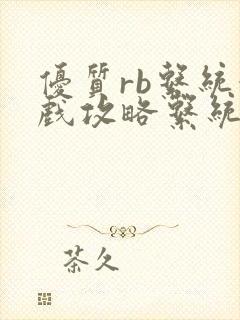 優質rb繫統
戲攻略繫統
茶久